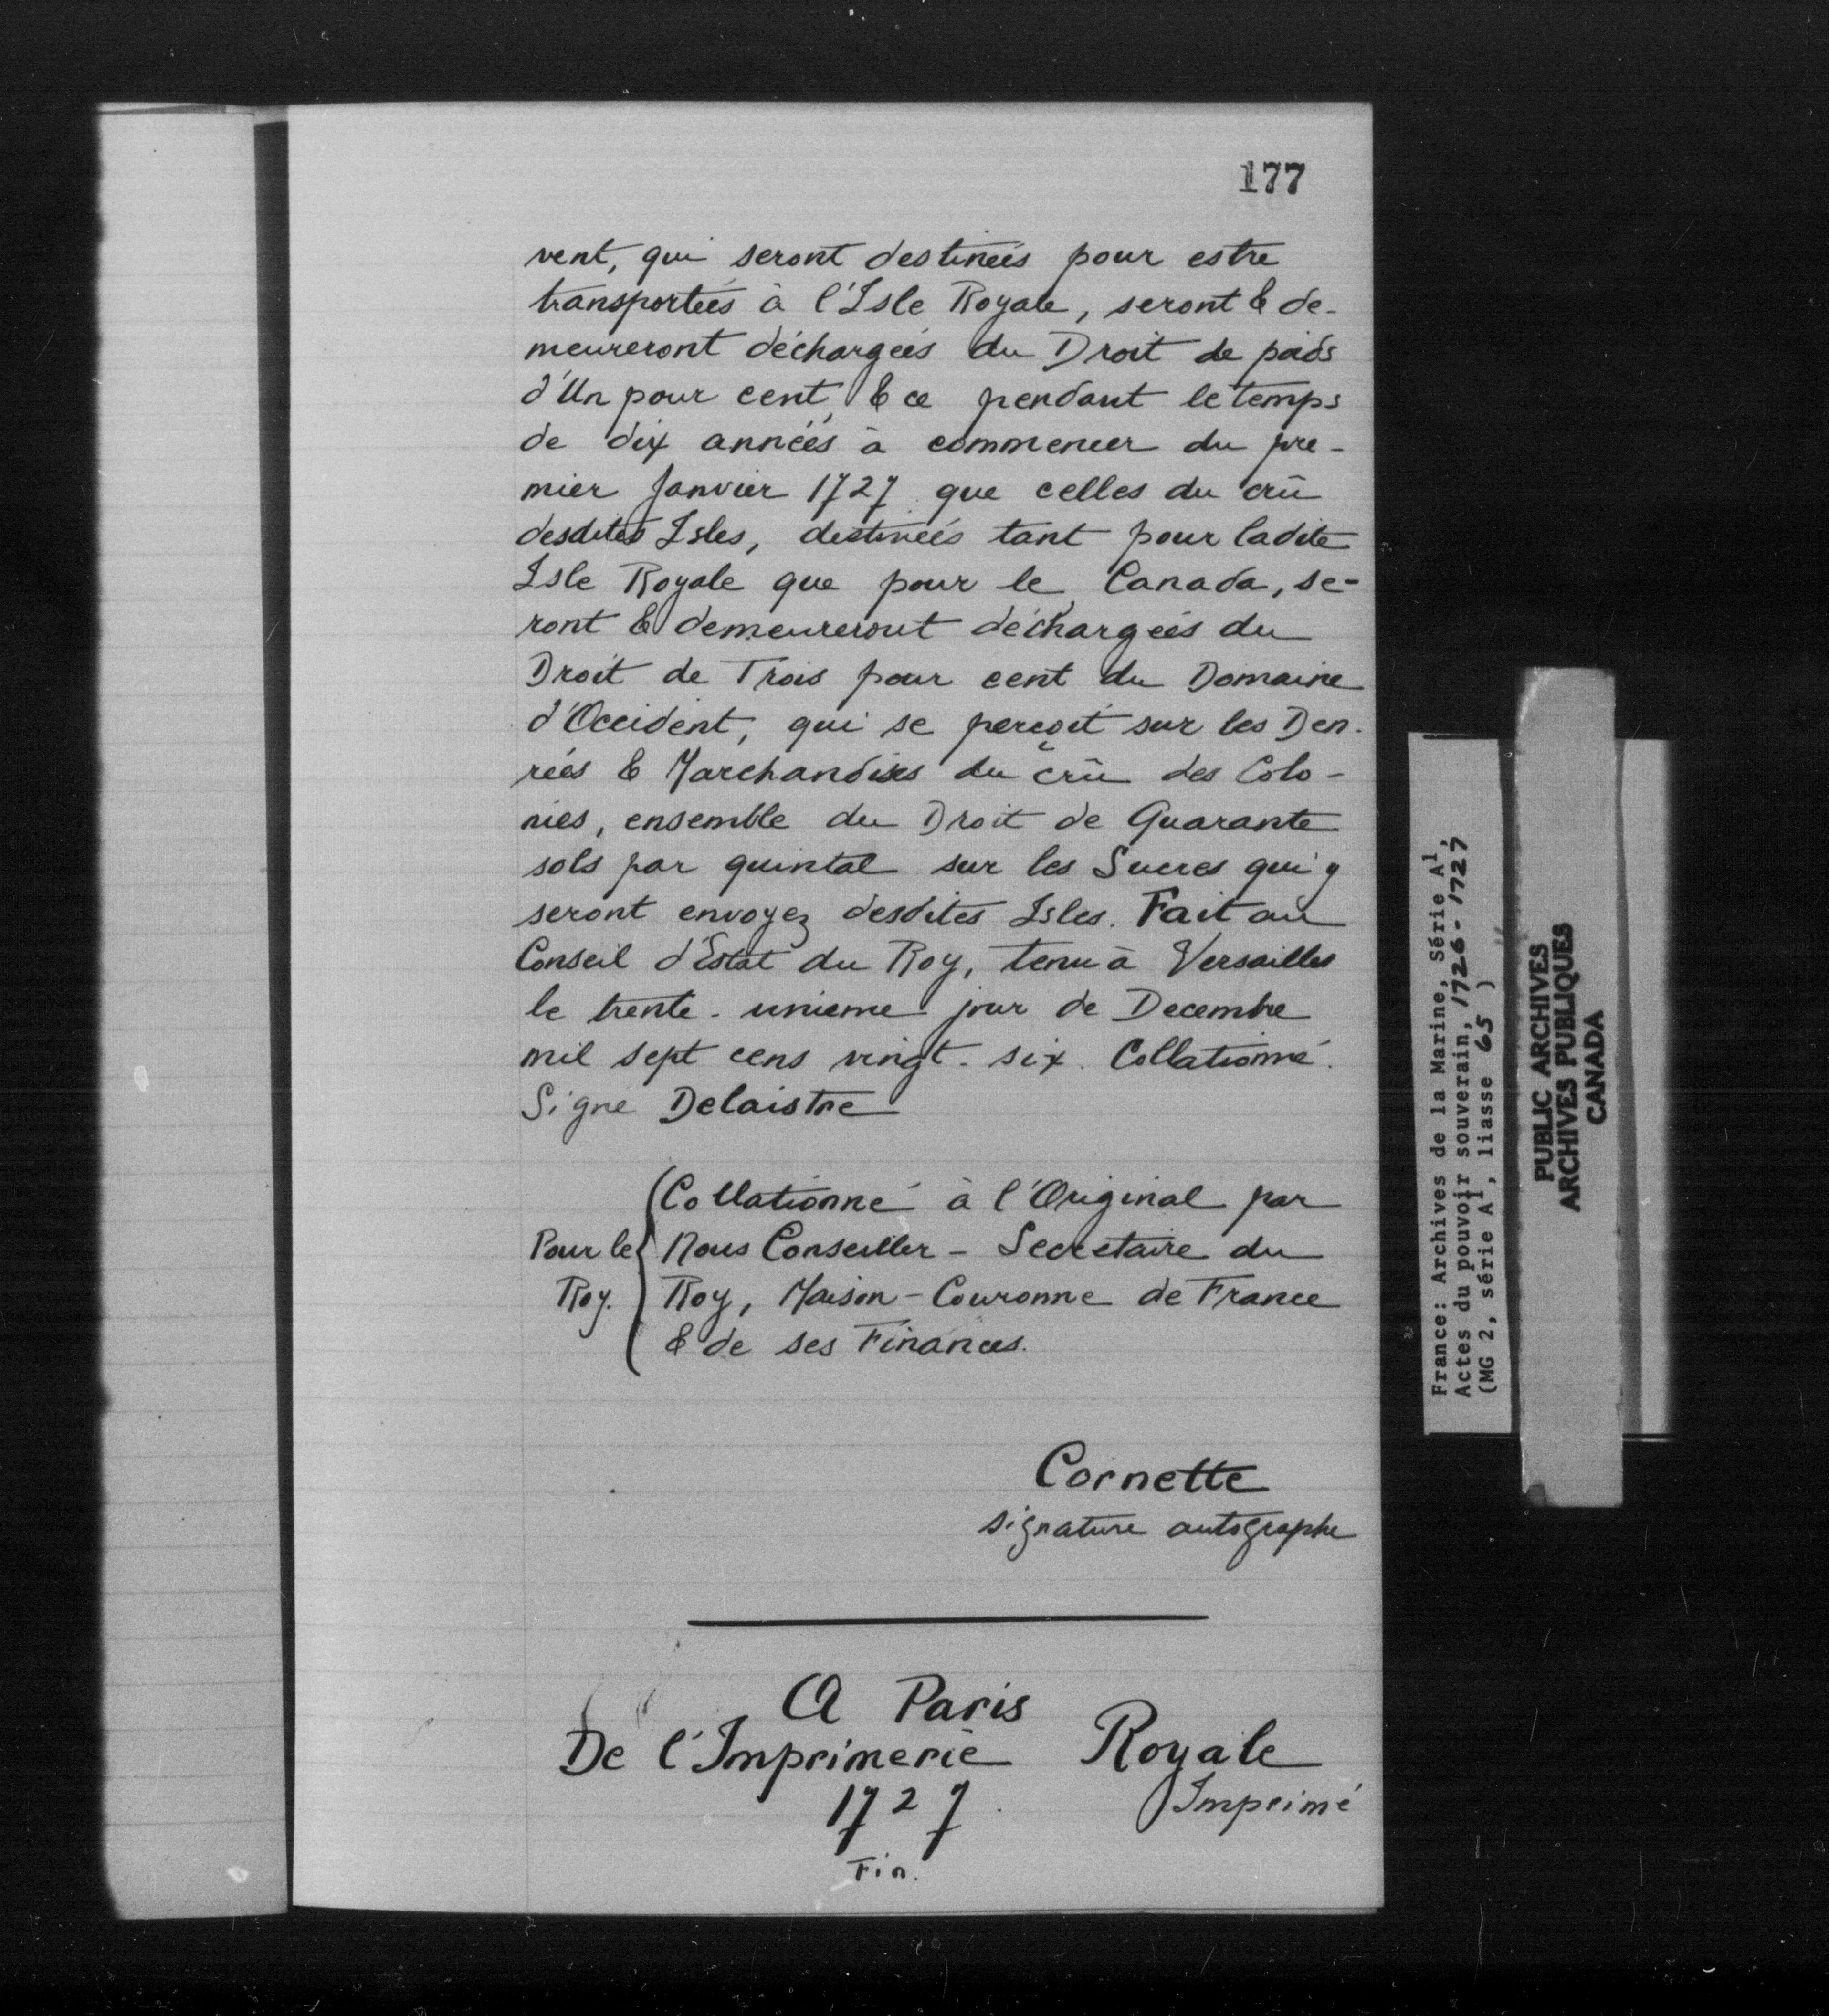 177
vent, qui seront destineés pour estre
transporteés à l'Isle Royale, seront & de-
meureront déchargeés du Droit de poids
d'Un pour cent, & ce pendant le temps
de dix anneés à commencer du pre-
mier Janvier 1727 que celles du crû
desdites Isles, destineés tant pour ladite
Isle Royale que pour le Canada, se-
ront & demeureront déchargeés du
Droit de Trois pour cent du Domaine
d'Occident, qui se perçoit sur les Den-
reés & Marchandises du crû des Colo-
nies, ensemble du Droit de Quarante
sols par quintal sur les Sucres qui y
seront envoyez desdites Isles. Fait au
Conseil d'Estat du Roy, tenu à Versailles
le trente-unieme jour de Decembre
mil sept cens vingt-six. Collationné.
Signé Delaistre
Pour le Roy.
Collationné à l'Original par
Nous Conseiller-Secretaire du
Roy, Maison-Couronne de France
& de ses Finances.
Cornette
signature autographe
A Paris
De l'Imprimerie Royale
1727.
Imprimé
Fin.
France: Archives de la Marine, Série A1,
Actes du pouvoir souverain, 1726-1727
(MG 2, série A1, liasse 65 )
PUBLIC ARCHIVES
ARCHIVES PUBLIQUES
CANADA